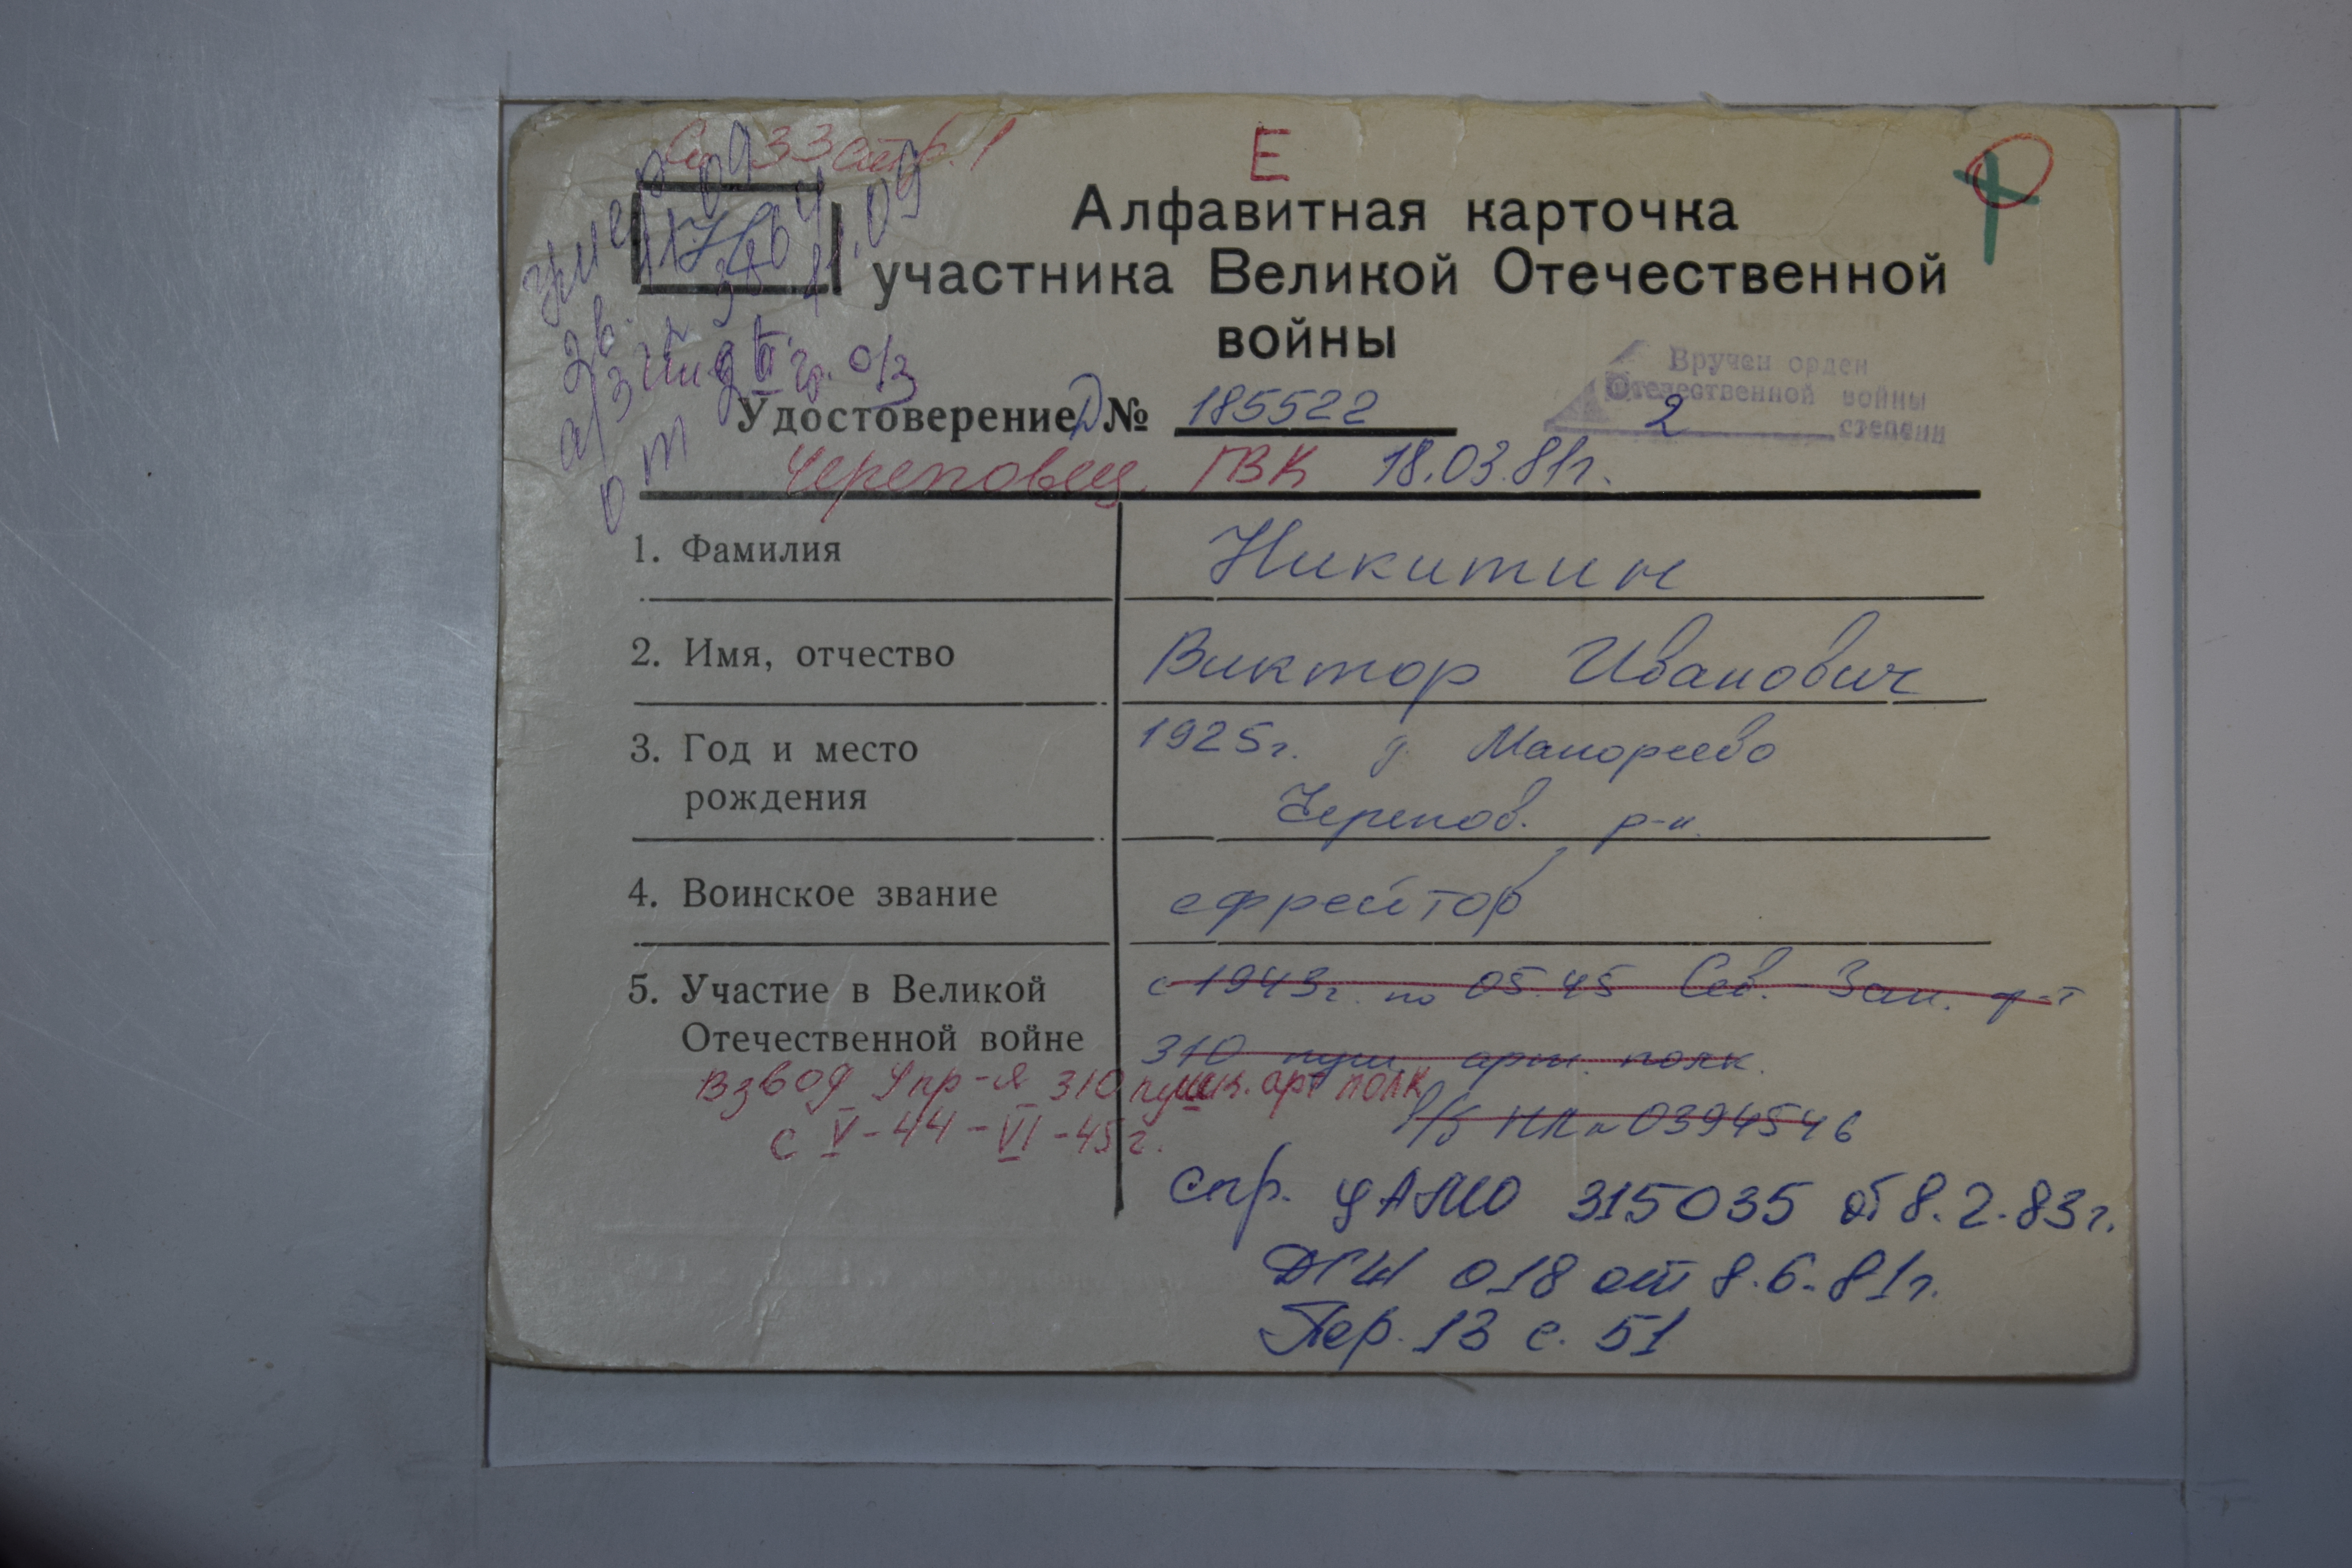 33 стр. 1
Е
умер
Алфавитная карточка
участника Великой Отечественной
войны
Вручен орден
Отечественной войны
2 степени
Удостоверение Д № 185522
Череповец ГВК 18.03.81г.
1. Фамилия Никитин
2. Имя, отчество Виктор Иванович
3. Год и место 1925г. д.
рождения Черепов. р-н.
4. Воинское звание ефрейтор
5. Участие в Великой с 1943г. по 05.45 Сев.-Зап. ф-т
Отечественной войне 310 пуш. арт. полк.
Взвод Упр-я 310 пушк. арт полк
в/б НЛ № 0394546
с V-44-VI-45г.
спр. ЦАМО 315035 от 8.2.83г.
018 от 8.6.81г.
Пер. 13 с. 51